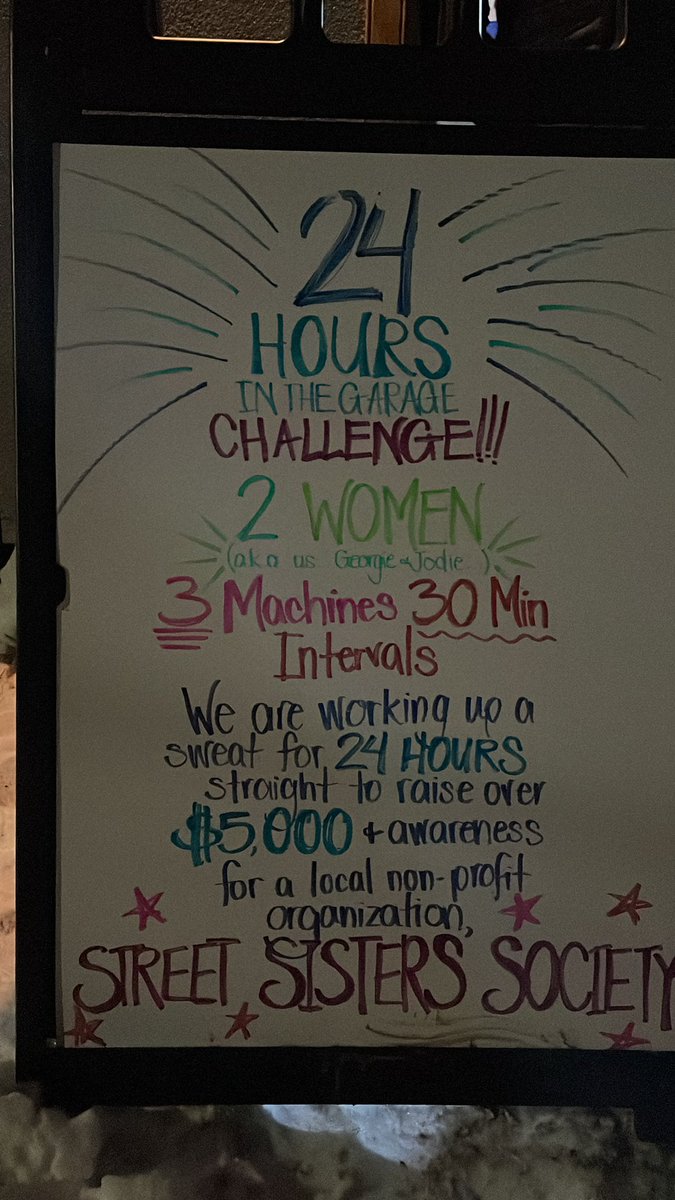 24
HOURS
IN THE GARAGE
CHALLENGE!!!
2 WOMEN
(aka us Georgie & Jodie )
3 Machines 30 Min
Intervals
We are working up a
sweat for 24 HOURS
straight to raise over
$5,000 + awareness
for a local non-profit
organization,
STREET SISTERS SOCIETY